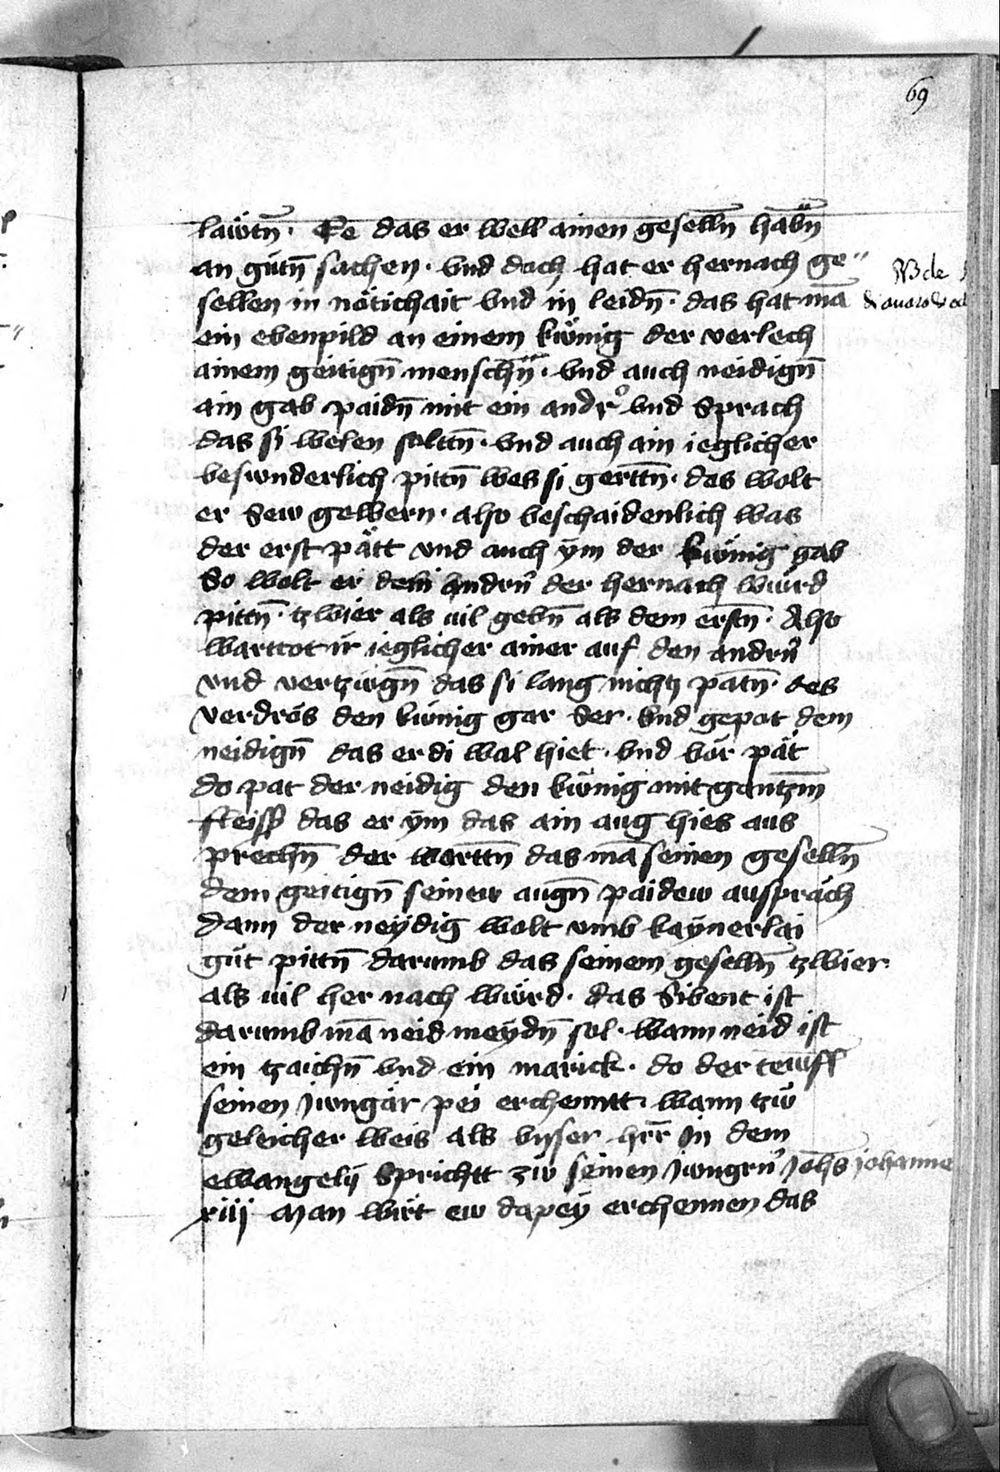 69
lawtn̄. Ee das er well ainen geselln̄ habn̄
an gutn̄ sachen. vnd doch hat er hernach ge〃
sellen in nötichait vnd in leidn̄. das hat mā
ein ebenpild an einem kwnig der verlech
ainem geitign̄ menschn̄. vnd auch neidign̄
ain gab paidn̄ mit ein andr̄ vnd Sprach
das si welen soltn̄. vnd auch ain ieglicher
besunderlich pittn̄ wes si gerttn̄. das wolt
er Sew gewern. also beschaidenlich was
der erst pätt vnd auch ym der kwnig gab
So wolt er dem andrn̄ der hernach wurd
pittn̄. tzwier als vil gebn̄ als dem erstn̄. Also
warttot ir ieglicher ainer auf den andrn̄
vnd vertzugn̄ das si lang nichtz patn̄. des
verdros den kunig gar Ser. vnd gepot dem
neidign̄ das er di wal hiet. vnd vor pät
do pat der neidig den kwnig mit gantzm̄
fleiss das er ym das ain aug hies aus
prechn̄ der worttn̄ das mā seinen geselln̄
dem geitign̄ seinew augn̄ paidew auspräch
dann der neydig wolt vmb kaynerlai
gut pittn̄ darumb das seinem geselln̄ tzwier
als vil her nach wurd. das Sibent ist
darumb mā neid meydn̄ sol. wann neid ist
ein tzaichn̄ vnd ein marick. do der tewfl
seinen Jungär pei erchennt. wann tzw
geleicher weis als vnser hrr̄ in dem
ewangelij Sprichtt zw seinen Jungrn̄ Johs Johanne
xiij Man wirt ew dapey erchennen das